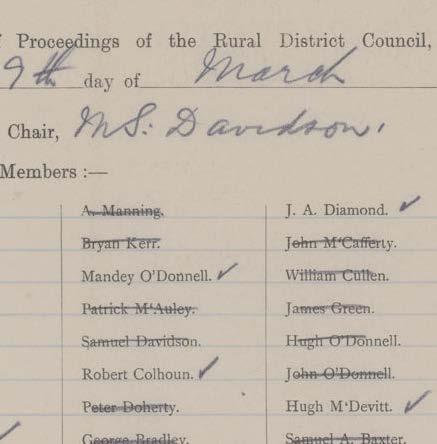 Proceedings of the Rural District Council,
9th day of March
Chair, MS. Davidson.
Members :—
A. Manning.
Bryan Kerr.
Mandey O'Donnell. ✓
Patrick M'Auley.
Samuel Davidson.
Robert Colhoun. ✓
Peter Doherty.
George Bradley.
J. A. Diamond. ✓
John M'Cafferty.
William Cullen.
James Green.
Hugh O'Donnell.
John O'Donnell.
Hugh M'Devitt. ✓
Samuel A. Baxter.